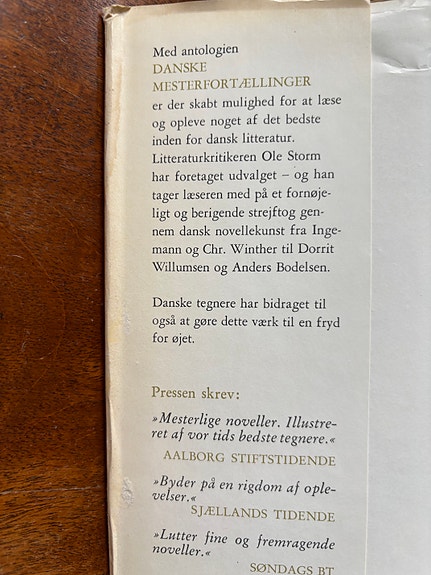 Med antologien
DANSKE
MESTERFORTÆLLINGER
er der skabt mulighed for at læse
og opleve noget af det bedste
inden for dansk litteratur.
Litteraturkritikeren Ole Storm
har foretaget udvalget – og han
tager læseren med på et fornøje-
ligt og berigende strejftog gen-
nem dansk novellekunst fra Inge-
mann og Chr. Winther til Dorrit
Willumsen og Anders Bodelsen.
Danske tegnere har bidraget til
også at gøre dette værk til en fryd
for øjet.
Pressen skrev:
»Mesterlige noveller. Illustre-
ret af vor tids bedste tegnere.«
AALBORG STIFTSTIDENDE
»Byder på en rigdom af ople-
velser.«
SJÆLLANDS TIDENDE
»Lutter fine og fremragende
noveller.«
SØNDAGS BT